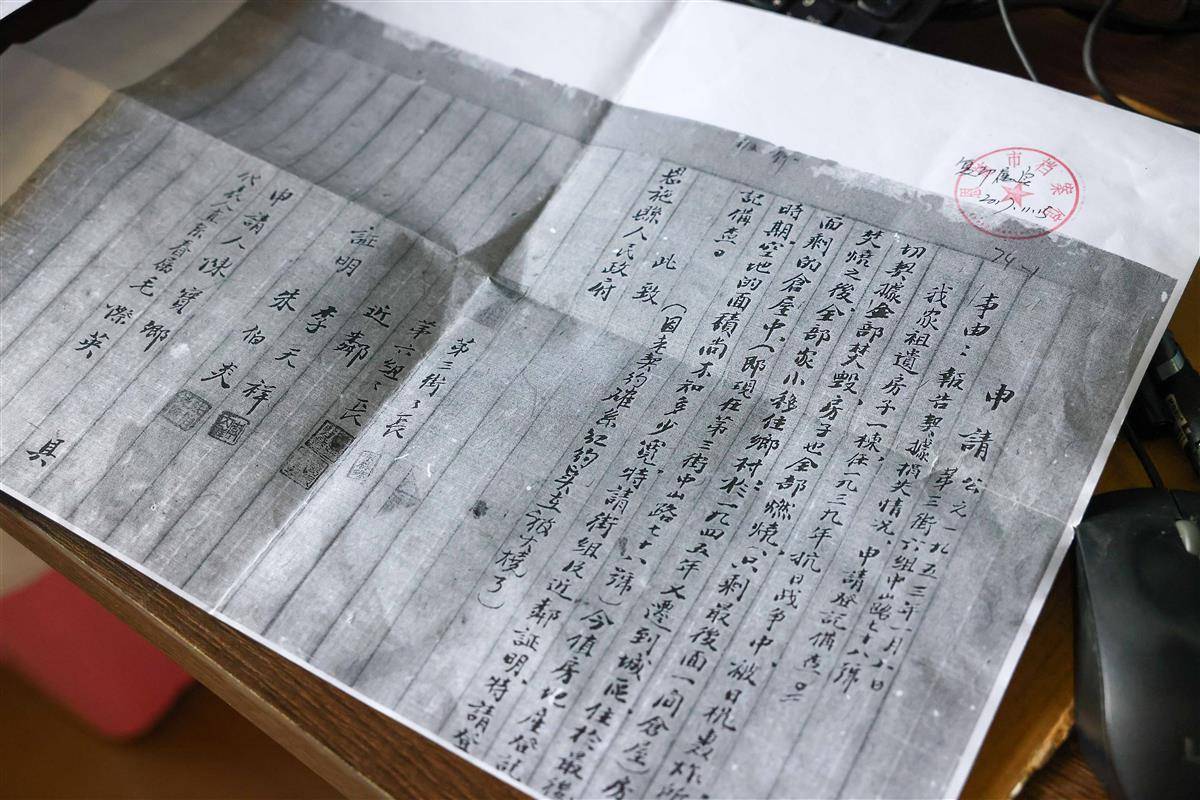 市档案馆
2017.11.15
74-1
申請
公元一九五三年一月六日
第三街六組中山路七十八號
事由：報告契據損失情况，申請登記備查
我家祖遺房子一棟，在一九三九年抗日战争中，被日机轰炸所
切契據全部焚毀，房子也全部燃燒，（只剩最後面一間倉屋）房
焚燒之後，全部家小移住鄉村，於一九四五年又遷到城區，住於最後
面剩的倉屋中，（即現在第三街中山路七十八號）今值房地産登記
時期，空地的面積尚不知多少寬，特請街組及近鄰証明，特請登
記備查。
（因老契約確系紅約被火燒了）
此致
恩施縣人民政府
第三街々長
第六組々長
近鄰
李天祥
朱伯炎
証明
申請人陳寶卿
代表人 毛傑英
具